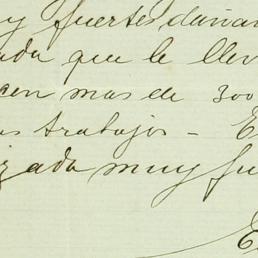 y fuertes dañan
ada que le llev
cen mas de 300
as trabajos - E
zada muy fu
E